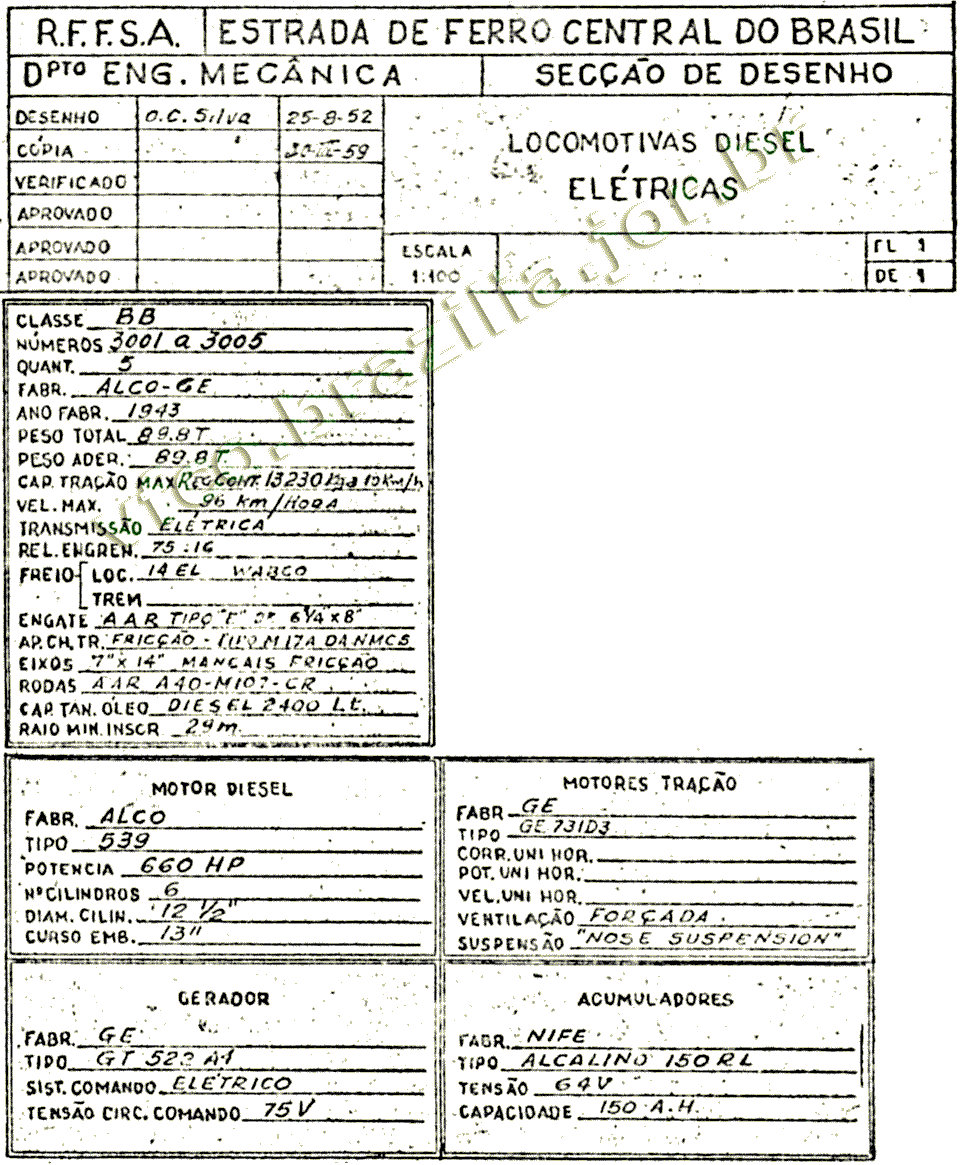 R.F.F.S.A. ESTRADA DE FERRO CENTRAL DO BRASIL
DPTO ENG. MECÂNICA SECÇÃO DE DESENHO
DESENHO O.C. Silva 25-8-52
CÓPIA 30-III-59
VERIFICADO
APROVADO
APROVADO
APROVADO
LOCOMOTIVAS DIESEL
ELÉTRICAS
ESCALA
1:100
FL 1
DE 1
vfco.brazilia.jor.br
CLASSE BB
NÚMEROS 3001 a 3005
QUANT. 5
FABR. ALCO-GE
ANO FABR. 1943
PESO TOTAL 89.8 T
PESO ADER. 89.8 T.
CAP. TRAÇÃO MAX REG CONT. 13230 Kg a 10 Km/h
VEL. MAX. 96 km/HORA
TRANSMISSÃO ELÉTRICA
REL. ENGREN. 75:16
FREIO LOC. 14 EL WABCO
TREM
ENGATE AAR TIPO "E" 6 1/4" x 8"
AP. CH. TR. FRICÇÃO - TIPO M17A DA NMCS
EIXOS 7" x 14" MANCAIS FRICÇÃO
RODAS AAR A40-M107-CR
CAP. TAN. ÓLEO DIESEL 2400 Lt.
RAIO MIN. INSCR 29 m.
MOTOR DIESEL
FABR. ALCO
TIPO 539
POTENCIA 660 HP
Nº CILINDROS 6
DIAM. CILIN. 12 1/2"
CURSO EMB. 13"
MOTORES TRAÇÃO
FABR GE
TIPO GE 731D3
CORR. UNI HOR.
POT. UNI HOR.
VEL. UNI HOR.
VENTILAÇÃO FORÇADA
SUSPENSÃO "NOSE SUSPENSION"
GERADOR
FABR. GE
TIPO GT 522 A1
SIST. COMANDO ELÉTRICO
TENSÃO CIRC. COMANDO 75 V
ACUMULADORES
FABR. NIFE
TIPO ALCALINO 150 RL
TENSÃO 64 V
CAPACIDADE 150 A.H.